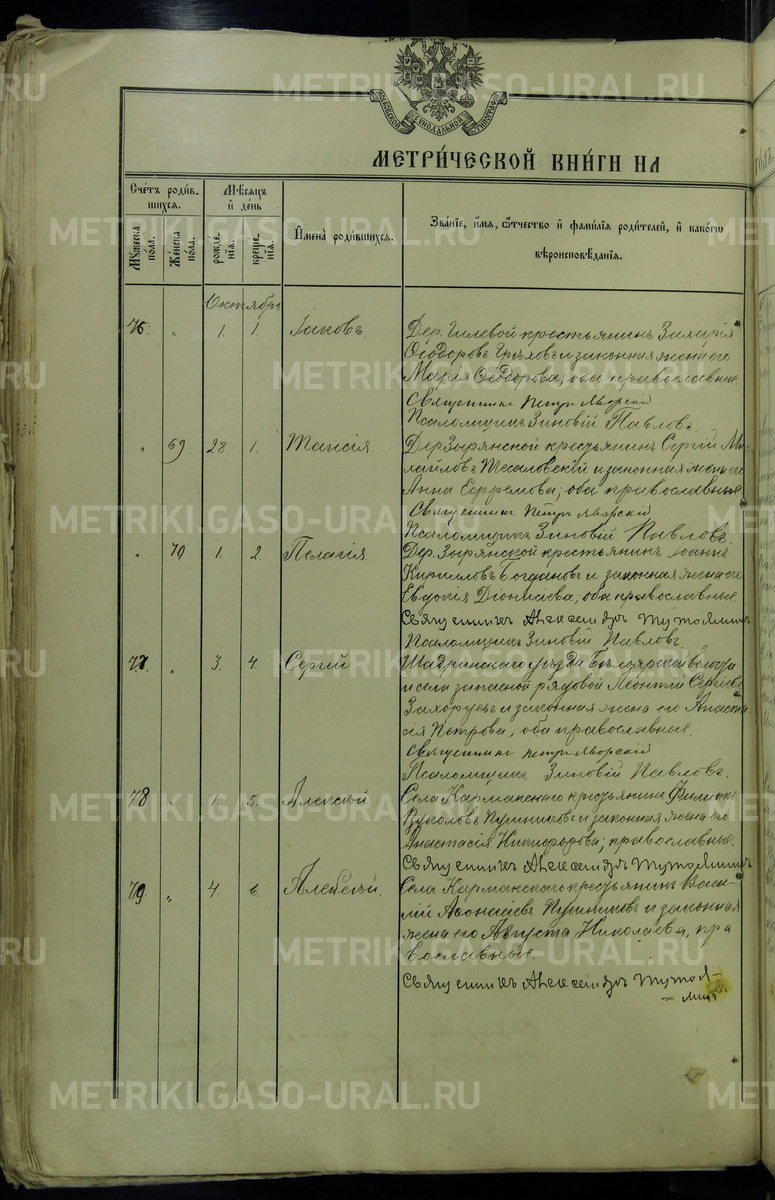 МОСКОВСКОЙ СѴНОДАЛЬНОЙ ТИПОГРАФІИ
МЕТРИ́ЧЕСКОЙ КНИ́ГИ НА
Сче́тъ роди́в-
шихся.
Мѣ́сяцъ
и де́нь
Имена̀ роди́вшихся.
Зва́нїе, и́мя, ѿ́тчество и фами́лїя роди́телей, и како́гѡ
вѣроисповѣ́данїя.
Мꙋ́жеска
по́ла.
Же́нска
по́ла.
рожде́-
нїя.
креще́-
нїя.
Октябрь
76. " 1. 1. Іаковъ.
Дер. Гилевой крестьянинъ Захарія
Ѳеодоровъ и законная жена его
Марія Ѳеодорова, оба православные.
Священникъ Петръ Яворскій
Псаломщикъ Зиновій Павловъ.
" 69. 28. 1. Таисія.
Дер. Зырянской крестьянинъ Сергій Ми-
хайловъ и законная жена его
Анна Ефремова; оба православные
Священникъ Петръ Яворскій
Псаломщикъ Зиновій Павловъ.
" 70 1. 2. Пелагія
Дер. Зырянской крестьянинъ Іоаннъ
Кирилловъ Богдановъ и законная жена его
Евдокія Діонисіева, оба православные.
Священникъ Александръ Тутолминъ
Псаломщикъ Зиновій Павловъ.
77. " 3. 4. Сергій
Шадринскаго уѣзда волости
и села запасной рядовой Леонтій Сергѣевъ
и законная жена его Анаста-
сія Петрова, оба православные.
Священникъ Петръ Яворскій
Псаломщикъ Зиновій Павловъ.
78 " 1. 5. Алексѣй
Села Кармакскаго крестьянинъ Филиппъ
Пушниковъ и законная жена его
Анастасія Никифорова; православные.
Священникъ Александръ Тутолминъ
79 " 4. 6. Алексѣй.
Села Кармакскаго крестьянинъ Васи-
лій Аѳонасіевъ Пушниковъ и законная
жена его Августа Николаева, пра
вославные.
Священникъ Александръ Тутол-
=минъ
METRIKI.GASO-URAL.RU